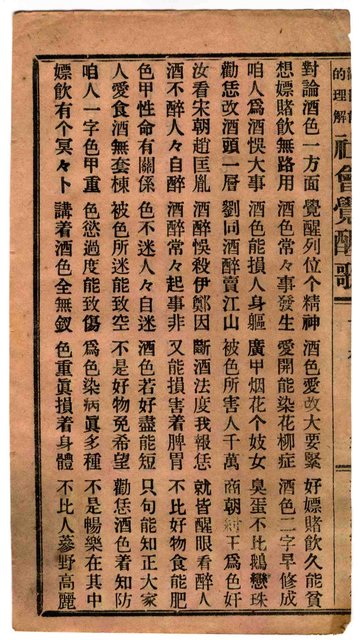 的理解
社會覺醒歌
對論酒色一方面 覺醒列位个精神 酒色愛改大要緊 好嫖賭飲久能貧
想嫖賭飲無路用 酒色常々事發生 愛開能染花柳症 酒色二字早修成
咱人爲酒悞大事 酒色能損人身軀 廣甲烟花个妓女 臭蛋不比鵝戀珠
勸恁改酒頭一層 劉同酒醉賣江山 被色所害人千萬 商朝紂王爲色奸
汝看宋朝趙匡胤 酒醉悞殺伊鄭因 斷酒法度我報恁 就皆醒眼看醉人
酒不醉人々自醉 酒醉常々起事非 又能損害着脾胃 不比好物食能肥
色甲性命有關係 色不迷人々自迷 酒色若好盡能短 只句能知正大家
人愛食酒無套棟 被色所迷能致空 不是好物免希望 勸恁酒色着知防
咱人一字色甲重 色慾過度能致傷 爲色染病眞多種 不是暢樂在其中
嫖飲有个冥々卜 講着酒色全無釵 色重眞損着身體 不比人蔘野高麗